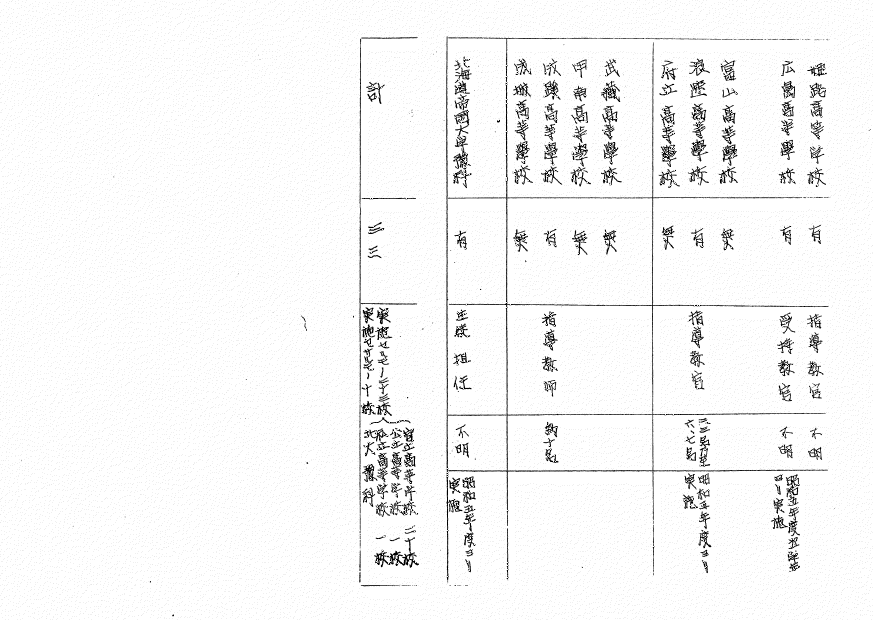 姫路高等学校 有 指導教官 不明
広島高等學校 有 受持教官 不明 昭和五年度
ヨリ実施
富山高等學校 無
浪速高等學校 有 指導教官 昭和五年度ヨリ
六、七名 実施
府立高等學校 無
武藏高等學校 無
甲南高等學校 無
成蹊高等學校 有 指導教師 約十名
成城高等學校 無
北海道帝國大學豫科 有 生徒担任 不明 昭和五年度ヨリ
実施
計 三三
実施セルモノ二十三校
官立高等学校 二十校
公立高等学校 一校
私立高等学校 一校
北大豫科
実施セザルモノ十校